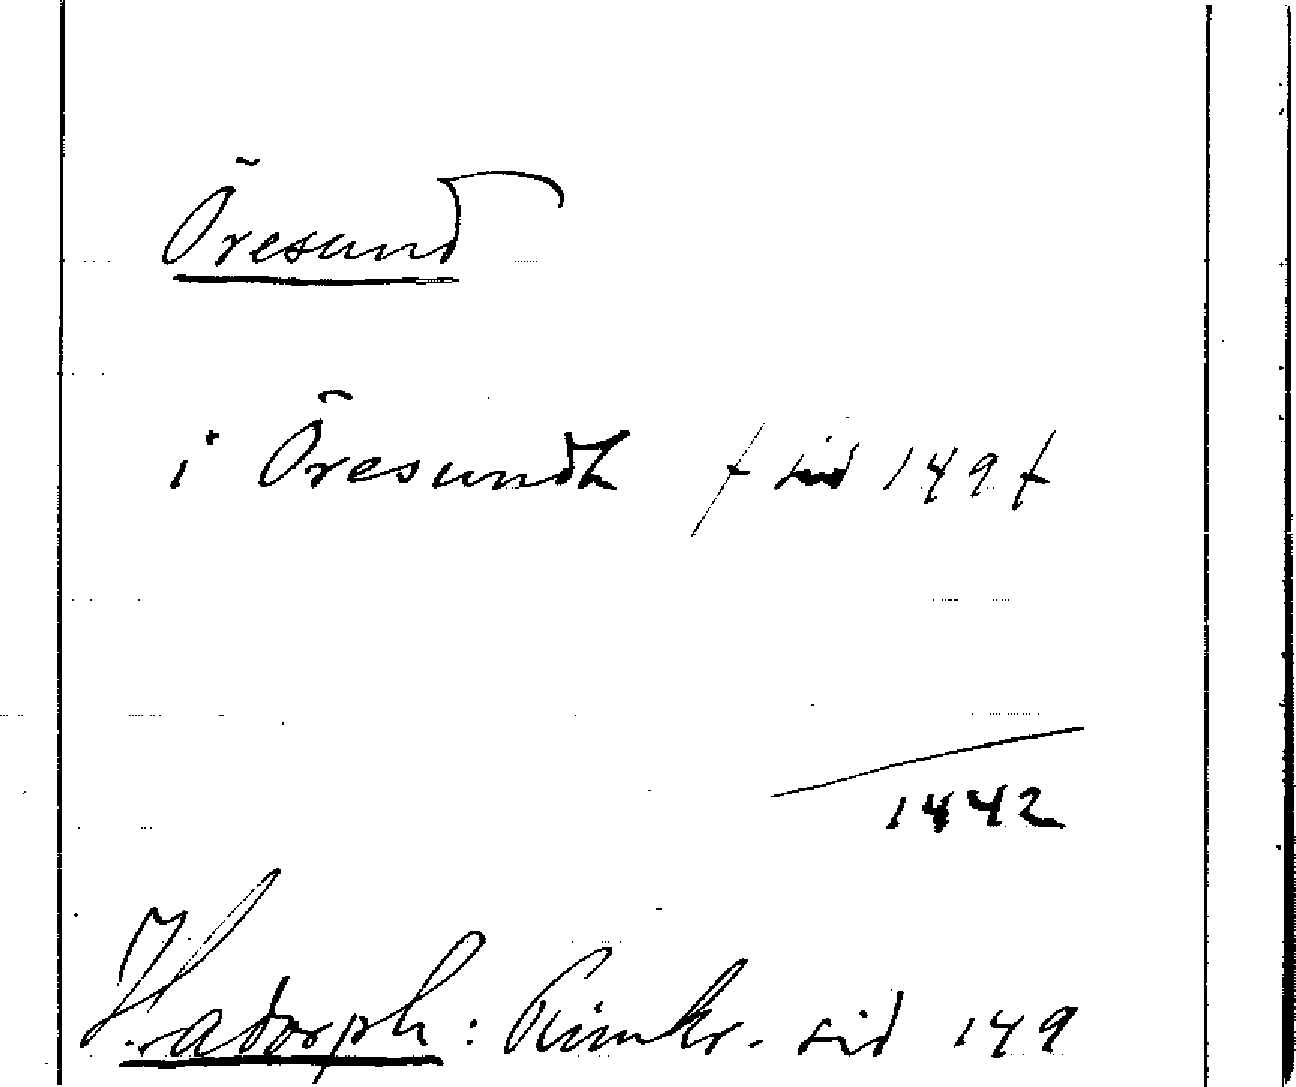 Öresund
i Öresundt / sid 149 f
1442
Hadorph: Rimkr. sid 149